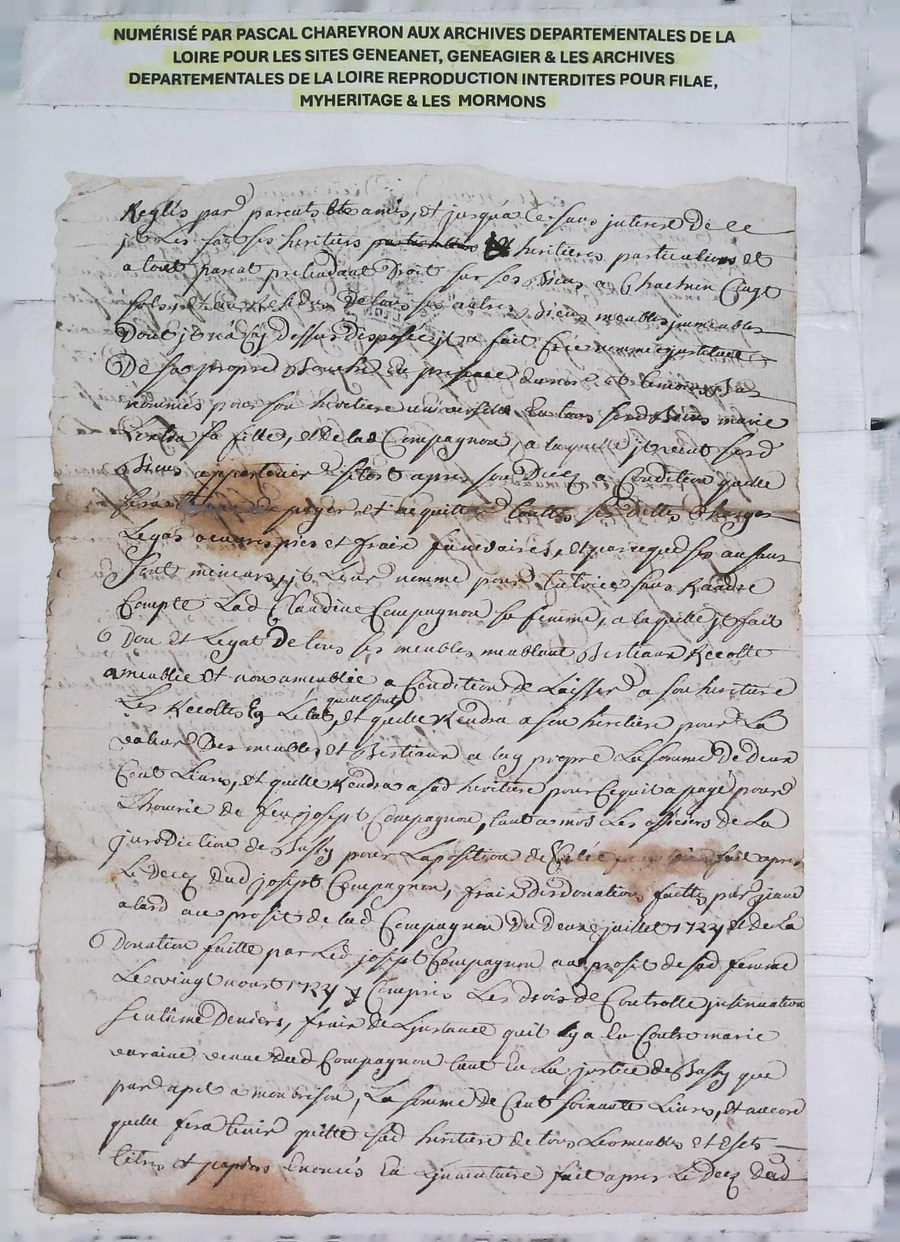 NUMÉRISÉ PAR PASCAL CHAREYRON AUX ARCHIVES DEPARTEMENTALES DE LA
LOIRE POUR LES SITES GENEANET, GENEAGIER & LES ARCHIVES
DEPARTEMENTALES DE LA LOIRE REPRODUCTION INTERDITES POUR FILAE,
MYHERITAGE & LES MORMONS
Reglés par parents et amis, et jusqua ce sans interest de ce
jt les fait ses heritiers heritieres particuliers et
a tout pretendant Droit sur ses Biens a Chachun Cinqt
sols et au residus de tous ses autres biens meubles immeubles
Dont jt n'a cy Dessus disposé jt a fait Crée nomme jnstitue
De sa propre Bouche En presence temoins
nommés pour son heritiere universelle En tous sesd Biens marie
sa fille, et de lad Compagnon, a laquelle jt veut sesd
Biens appartenir sitost apres son Decez a Condition quelle
sera payer et acquiter touttes ses dettes Charges
Legas oeuvres pies et frais funeraires, et parceque ses
sont mineurs, jt Leur nomme pour tutrice sans Randre
Compte Lad Claudine Compagnon sa femme, a laquelle jt fait
Don et Legat De tous ses meubles meublant Bestiaux Recolte
ameublie et non ameublie a Condition de Laisser a son heritiere
Les Recoltes En Letat quelle sont, et quelle Rendra a son heritiere pour La
valeur Des meubles et Bestiaux a luy propre La somme de deux
Cent Livres, et quelle Rendra a sad heritiere pour Cequil a payé pour
Lhoirie de feu joseph Compagnon, tant a mos Les officiers de La
jurediction de Bussy pour Laposition de fait apres
Le Decez dud joseph Compagnon, frais Des donations faitte par
alard au profit de lad Compagnon Du Deux juillet et de La
Donation faitte par Led joseph Compagnon au profit de sad femme
Le vingt Compris Les droit de Controlle jnsinuation
Centiême Deniers, frais de Linstance quil y a Eu Contre marie
varaine veuve dud Compagnon tant En La justice de Bussy que
par apel a monbrison, La somme de Cent soixante Livres, et ancore
quelle fera tenir quitte sad heritiere de tous Les meubles et Efets
titres et papiers Enoncés En Linventaire fait apres Le Decez Dud